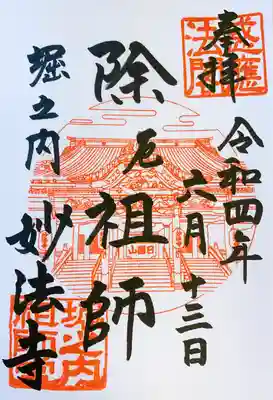 奉拝
令和四年
六月十三日
除厄祖師
堀之内
妙法寺
日圓山